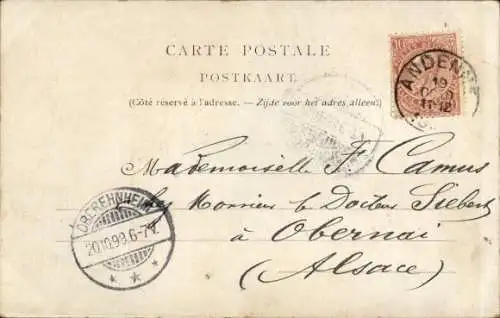 CARTE POSTALE
POSTKAART
(Côté réservé à l'adresse. — Zijde voor het adres alleen)
10
ANDENNE
19
11-12
Mademoiselle F. Camus
chez Monsieur le Docteur Siebert
à Obernai
(Alsace)
OBEREHNHEIM
20.10.99.6-7V.